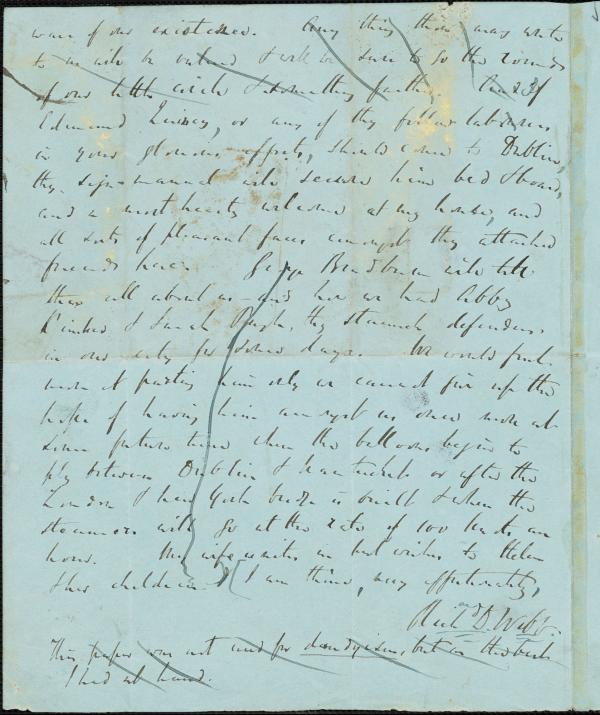 ware of our existence. Any thing thou may write
to us will be valued & will be sure to go the rounds
of our little circle & something farther. And if
Edmund Quincy, or any of thy fellow laborers
in your glorious efforts, should come to Dublin,
thy sign-manual will secure him bed & board,
and a most hearty welcome at my house, and
all sorts of pleasant faces amongst thy attached
friends here. George Bradburn will tell
thee all about us - and how we had Abby
Kimber & Sarah Pugh, thy staunch defenders
in our city for some days. We would feel
more at parting him only we cannot give up the
hope of having him amongst us once more at
some future time when the balloons begin to
ply between Dublin & Nantucket or after the
London & New York bridge is built & when the
steamers will go at the rate of 100 knots an
hour. My wife unites in best wishes to Helen
& her children. I am thine, very affectionately,
Richd. D. Webb.
This paper was not used for dandyism, but is the best
I had at hand.